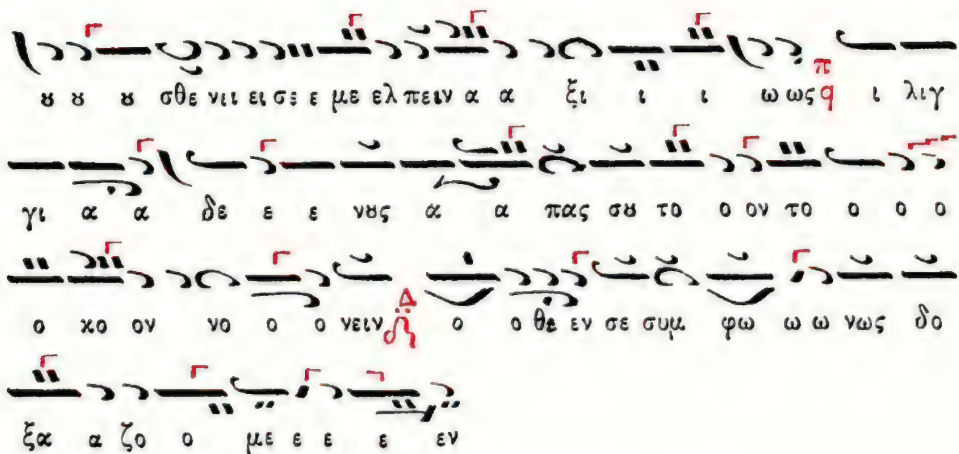 ȣ ȣ ȣ σθε νιι ει σε ε με ελ πειν α α ξι ι ι ω ως π q ι λιγ
γι α α δε ε ε νȣς α α πας σȣ το ο ον το ο ο ο
ο κο ον νο ο ο νειν Δ ο ο θε εν σε συμ φω ω ω νως δο
ξα α ζο ο με ε ε ε εν